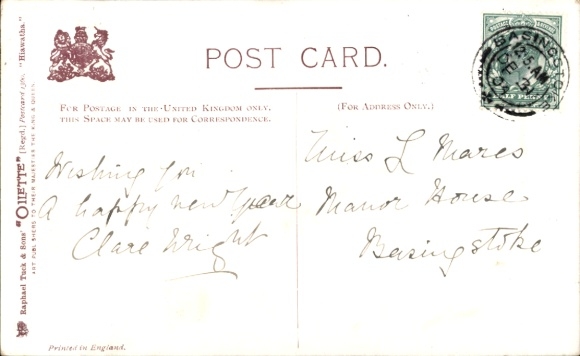 POST CARD.
FOR POSTAGE IN THE UNITED KINGDOM ONLY,
THIS SPACE MAY BE USED FOR CORRESPONDENCE.
(FOR ADDRESS ONLY.)
Wishing you
A happy new year
Clare Wright
Miss L Mares
Manor House
Basingstoke
BASINGSTOKE
Raphael Tuck & Sons' "OILETTE" [Regd.] Postcard "Hiawatha."
ART PUBLISHERS TO THEIR MAJESTIES THE KING & QUEEN.
Printed in England.